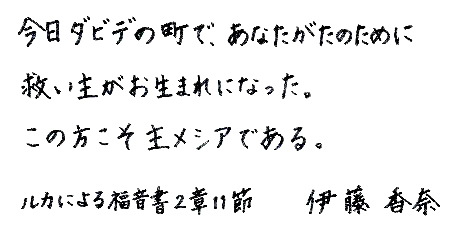 今日ダビデの町で、あなたがたのために
救い主がお生まれになった。
この方こそ主メシアである。
ルカによる福音書2章11節　伊藤 香奈